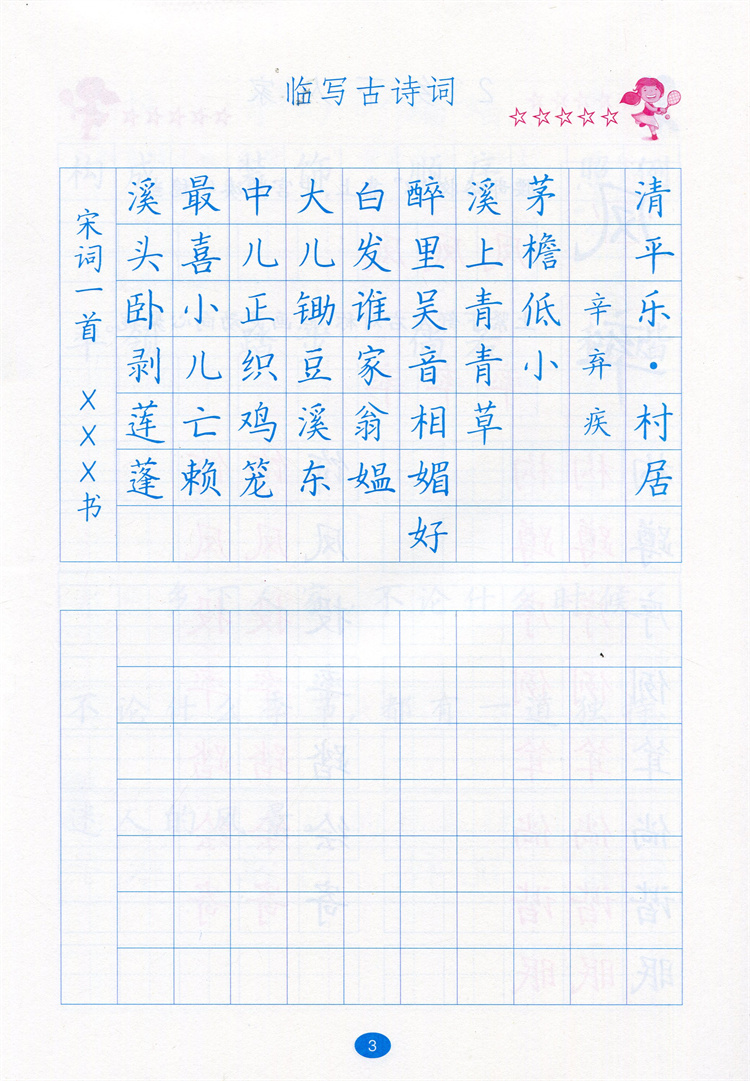 临写古诗词
清平乐·村居
辛弃疾
茅檐低小
溪上青青草
醉里吴音相媚好
白发谁家翁媪
大儿锄豆溪东
中儿正织鸡笼
最喜小儿亡赖
溪头卧剥莲蓬
宋词一首 XXX书
3